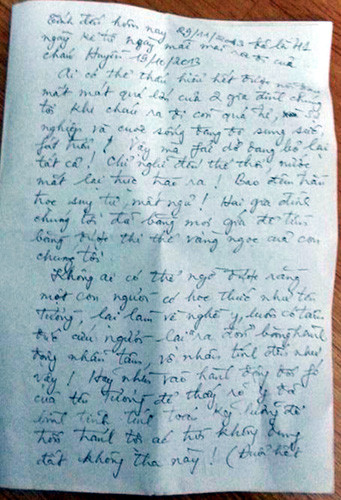 Tính đến hôm nay 29/11/2013 đã là 41
ngày kể từ ngày mãi mãi ra đi của
cháu Huyền 19/10/2013
Ai có thể thấu hiểu hết được nỗi đau
mất mát quá lớn của 2 gia đình chúng
tôi khi cháu ra đi, con quá trẻ, sự
nghiệp và cuộc sống đang độ sung sức
fát triển! Vậy mà fải dở dang bỏ lại
tất cả! Chỉ nghĩ đến thế thôi nước
mắt lại trực trào ra! Bao đêm trằn
trọc suy tư, mất ngủ! Hai gia đình
chúng tôi đã bằng mọi giá để tìm
bằng được thi thể vàng ngọc của con
chúng tôi
Không ai có thể ngờ được rằng
một con người có học thức như tên
Tường, lại làm về nghề y, luôn có tâm
để cứu người lại ra đòn bằng hành
động nhẫn tâm, vô nhân tính đến như
vậy! Hãy nhìn vào hành động đã
của tên Tường để thấy rõ ý đồ
tinh tính toán kỹ lưỡng để
hòng hành tội ác trời không dung
đất không tha này! (Dưới hết